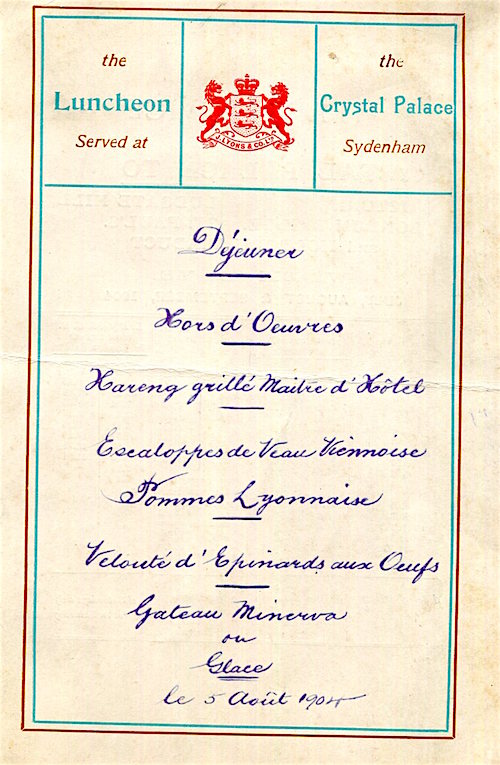 the
Luncheon
Served at
J. LYONS & CO. LTD
the
Crystal Palace
Sydenham
Déjeuner
Hors d'Oeuvres
Hareng grillé Maitre d'Hôtel
Escaloppes de Veau Viennoise
Pommes Lyonnaise
Velouté d'Epinards aux Oeufs
Gateau Minerva
ou
Glace
le 5 Août 1904